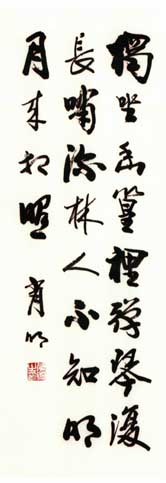 獨坐幽篁裡彈琴復
長嘯深林人不知明
月來相照
肖明